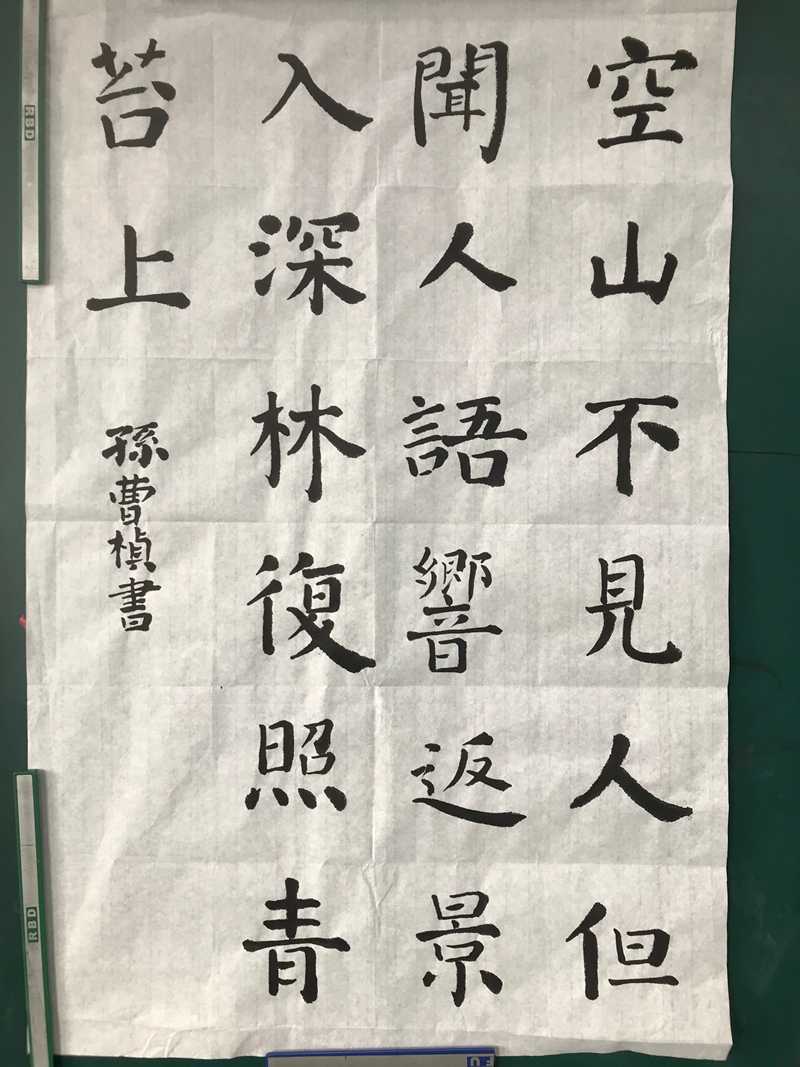 空山不見人但
聞人語響返景
入深林復照青
苔上
孫曹楨書
RBD
RBD